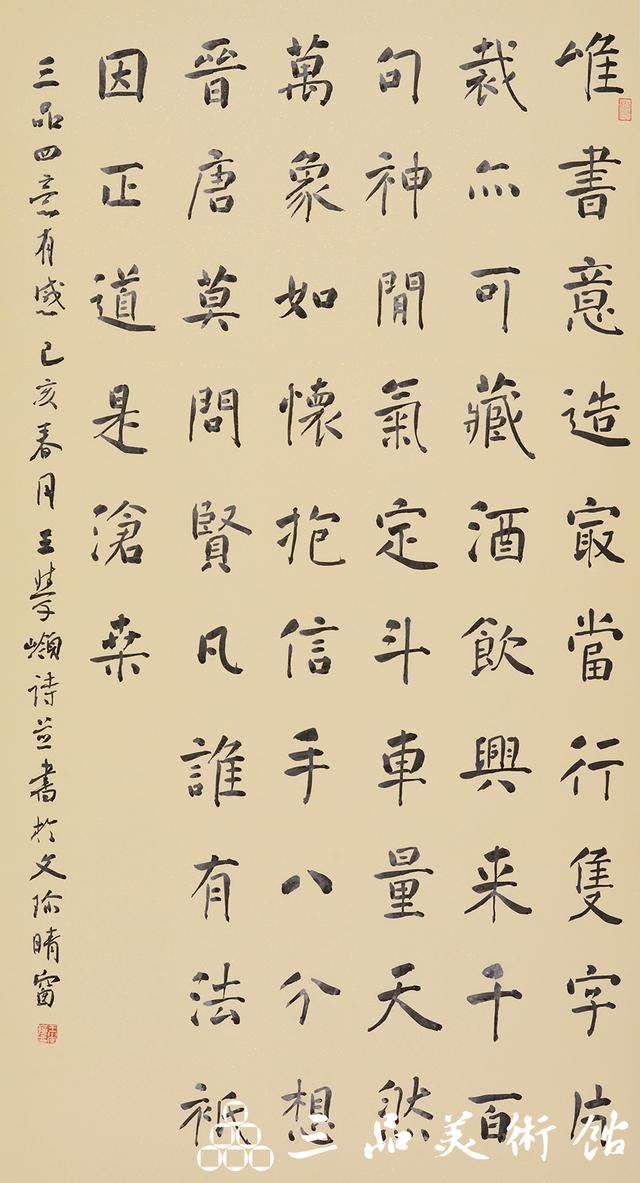 唯書意造冣當行隻字片
裁亦可藏酒飲興来千百
句神閒氣定斗車量天然
萬象如懷抱信手八分想
晉唐莫問賢凡誰有法祇
因正道是滄桒
三品四意有感己亥春月王學嶺詩並書於文晴窗
三品美術館